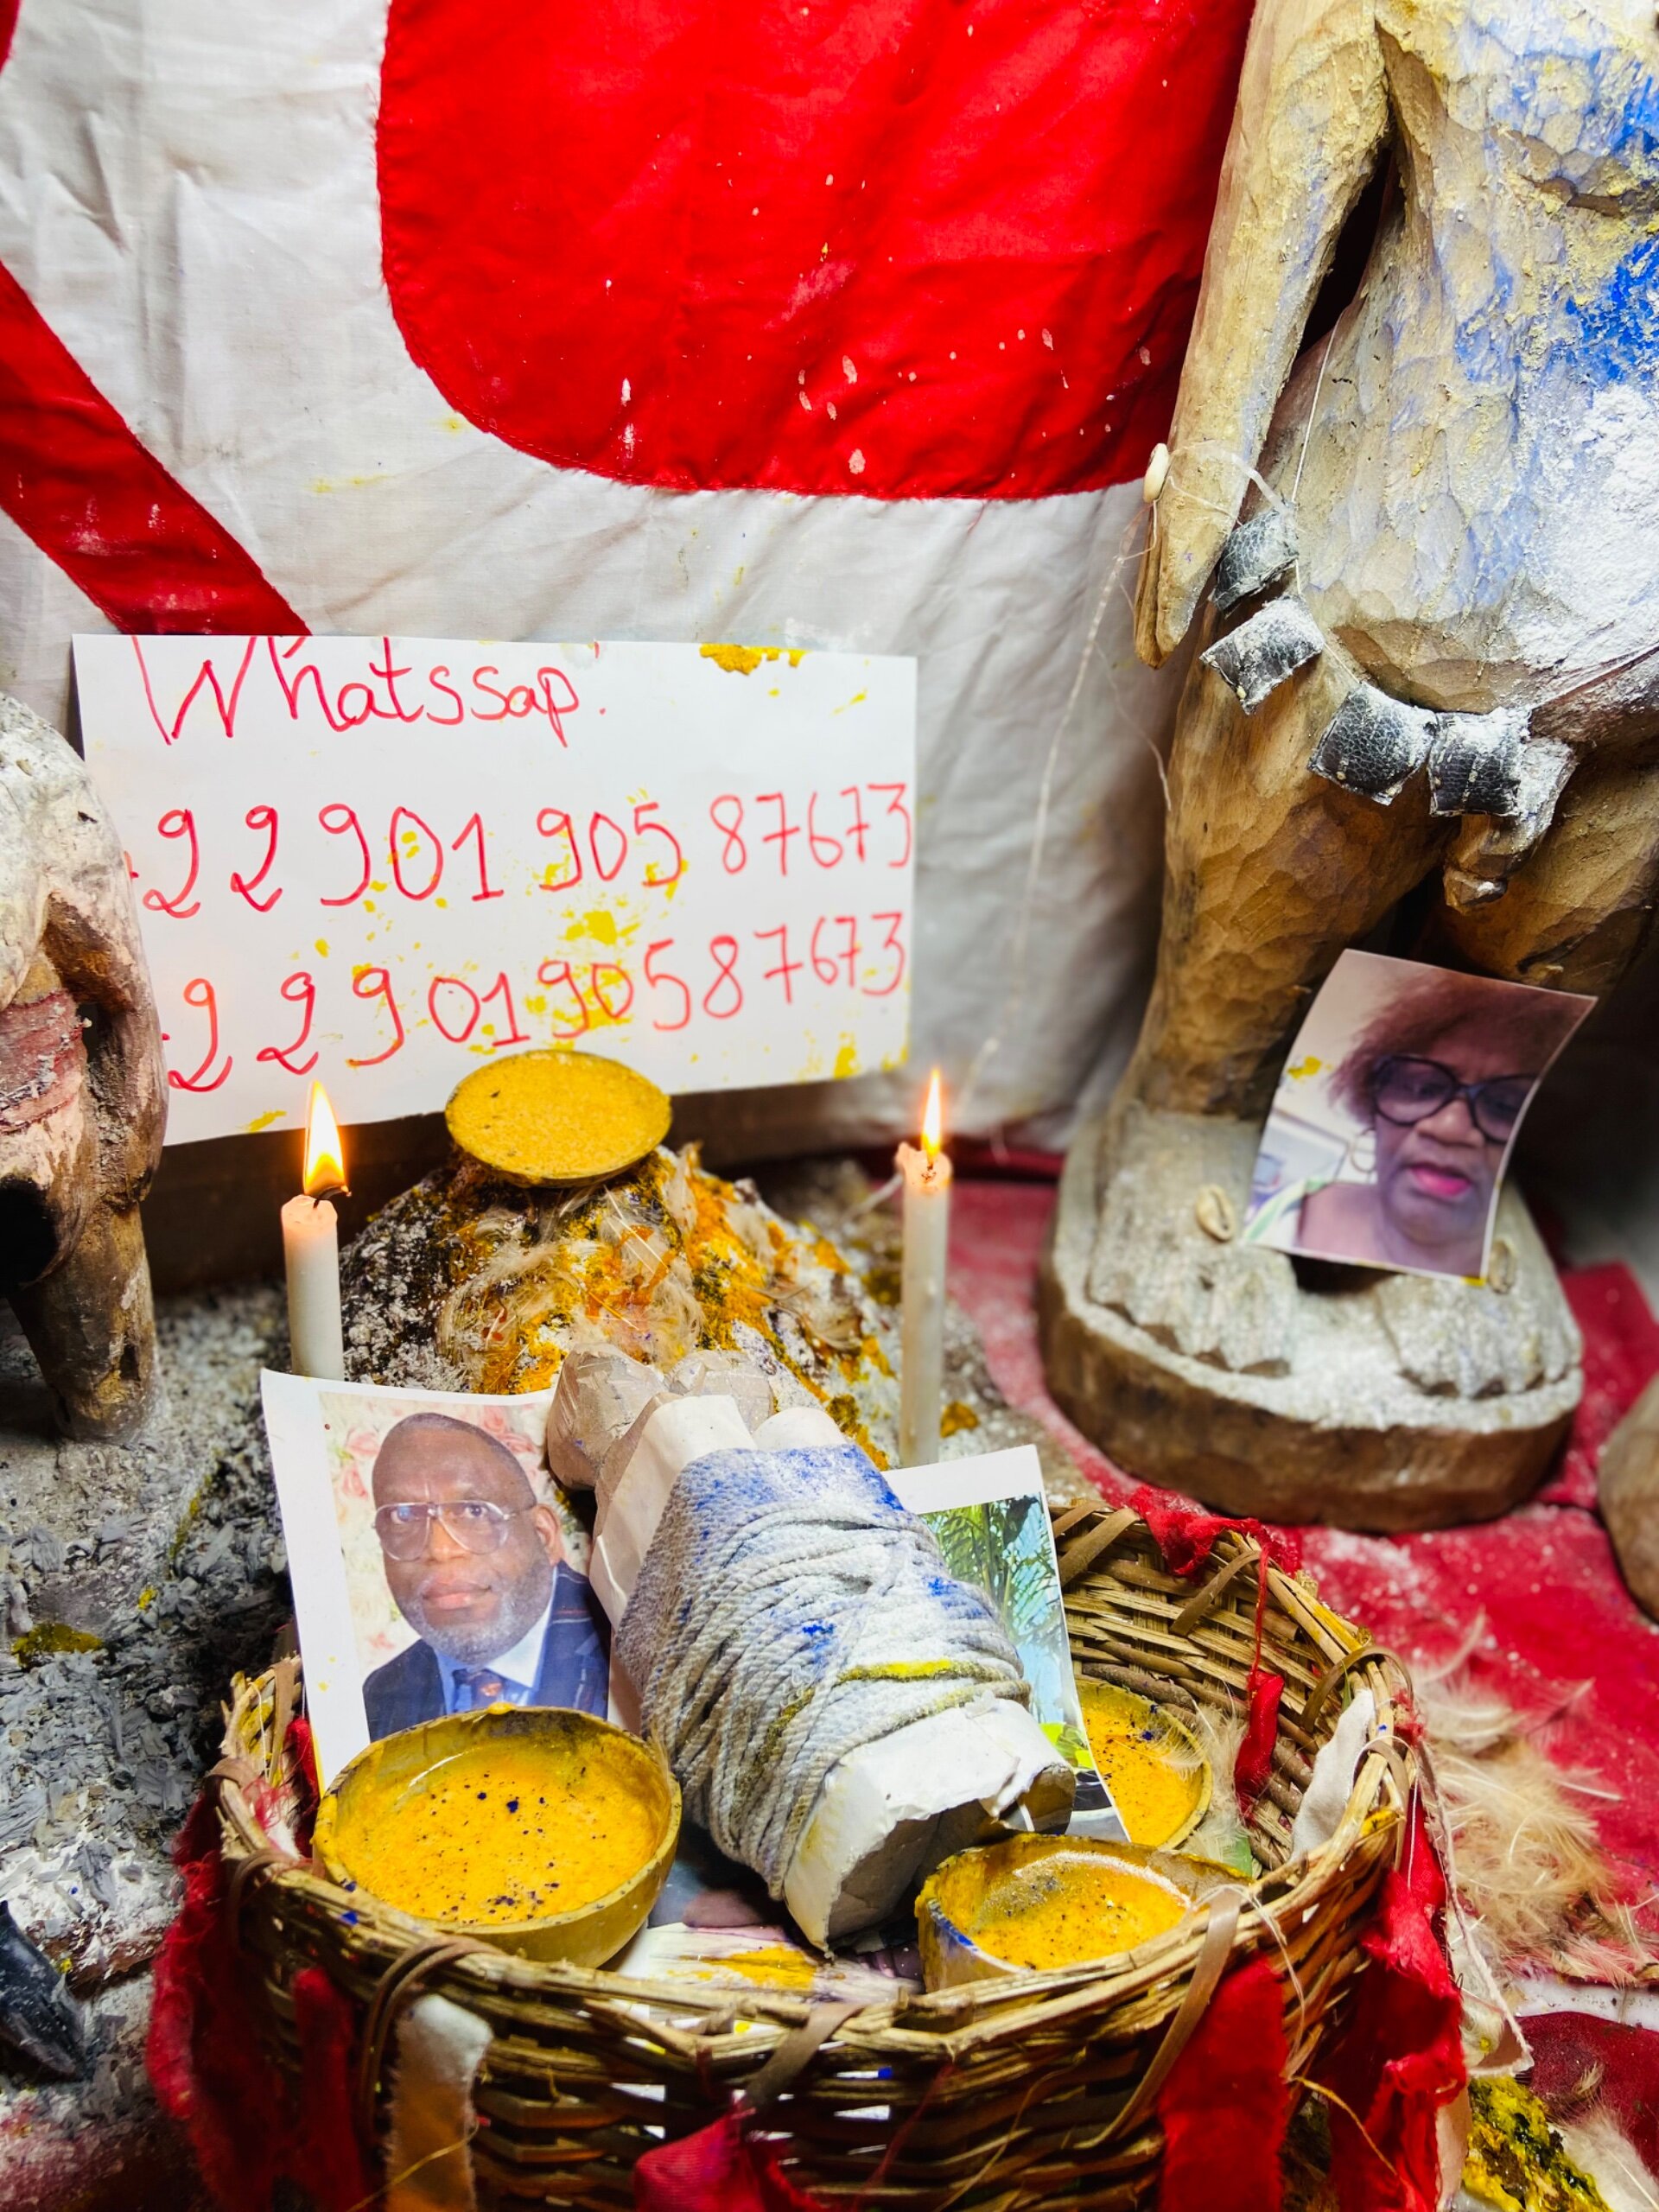 Whatssap:
+22901 905 87673
+2290190587673